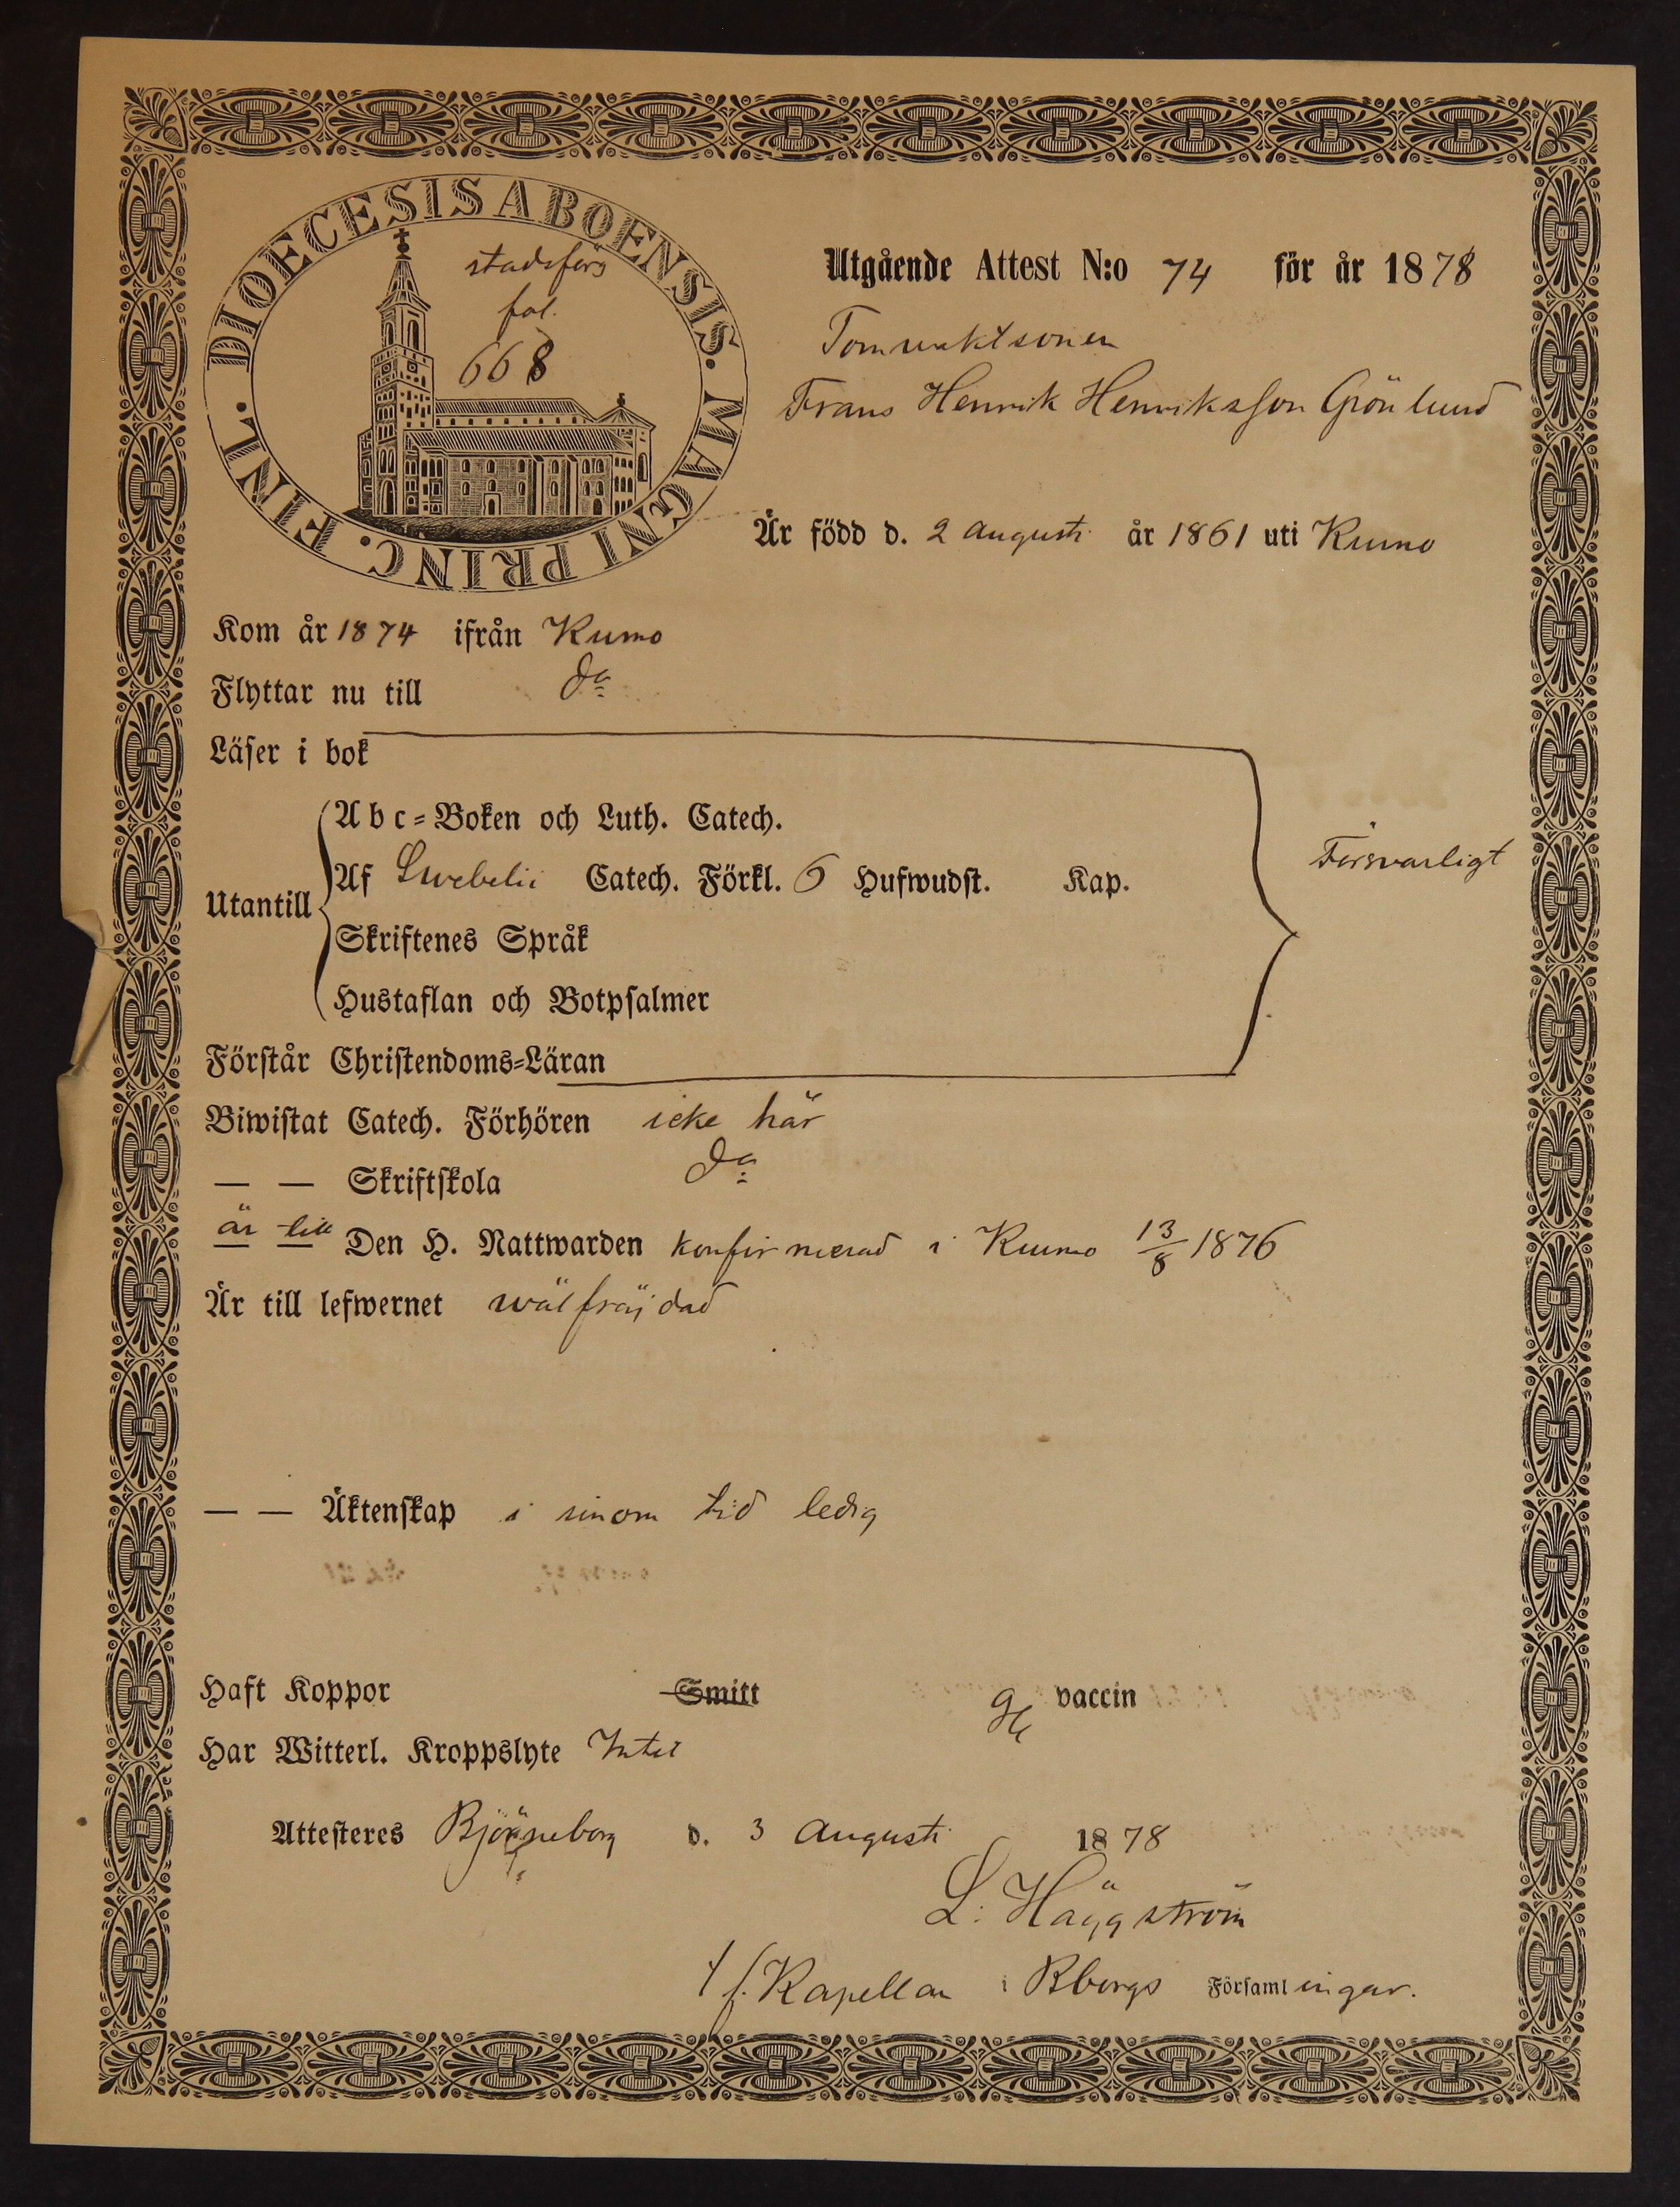 DIOECESIS ABOENSIS. MAGNI PRINC. FINL.
stadsförs
fol.
668
Utgående Attest N:o 74 för år 1878
Tomvaktsonen
Frans Henrik Henriksson Grönlund
Är född d. 2 augusti år 1861 uti Kumo
Kom år 1874 ifrån Kumo
Flyttar nu till do
Läser i bok
Abc-Boken och Luth. Catech.
Utantill Af Swebelii Catech. Förkl. 6 Hufwudst. Kap.
Försvarligt
Skriftenes Språk
Hustaflan och Botpsalmer
Förstår Christendoms-Läran
Biwistat Catech. Förhören icke här
— — Skriftskola do
är till Den H. Nattwarden konfirmerad i Kumo 13/8 1876
Är till lefwernet wälfräjdad
— — Äktenskap i sinom tid ledig
Haft Koppor Smitt vaccin
Har Witterl. Kroppslyte Intet
Attesteres Björneborg d. 3 Augusti 1878
L. Häggström
t f. Kapellan i Bborgs Församlingar.